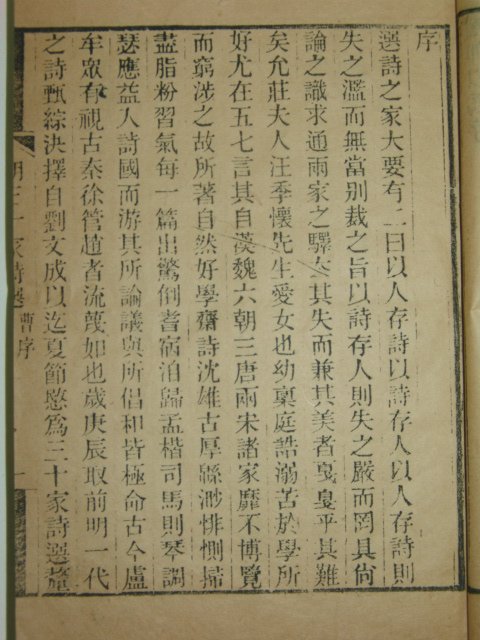 序
選詩之家大要有二曰以人存詩以詩存人以人存詩則
失之濫而無當別裁之旨以詩存人則失之嚴而罔具尙
論之識求通兩家之驛 其失而兼其美者戛戛乎其難
矣允莊夫人汪季懷先生愛女也幼稟庭誥溺苦於學所
好尤在五七言其自漢魏六朝三唐兩宋諸家靡不博覽
而窮涉之故所著自然好學齋詩沈雄古厚緜渺悱惻掃
盡脂粉習氣每一篇出驚倒耆宿洎歸孟楷司馬則琴調
瑟應益人詩國而游其所論議與所倡和皆極命古今盧
牟眾有視古秦徐管趙者流蔑如也歲庚辰取前明一代
之詩甄綜決擇自劉文成以迄夏節愍爲三十家詩選釐
明三十家詩選 曹序 一